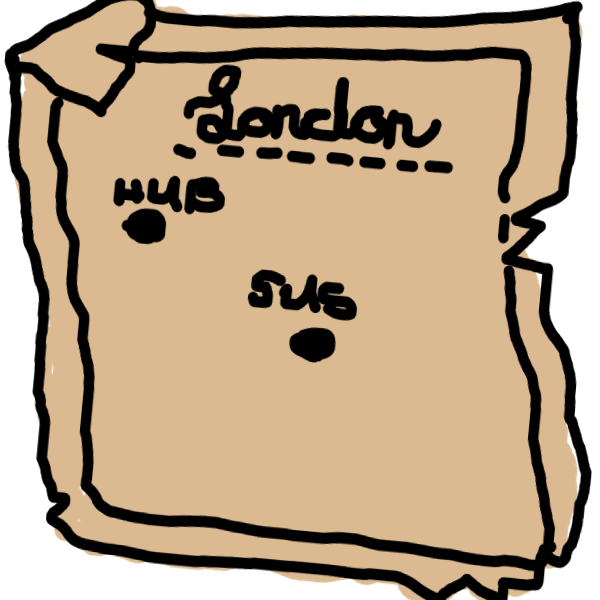 London
HUB
SUS